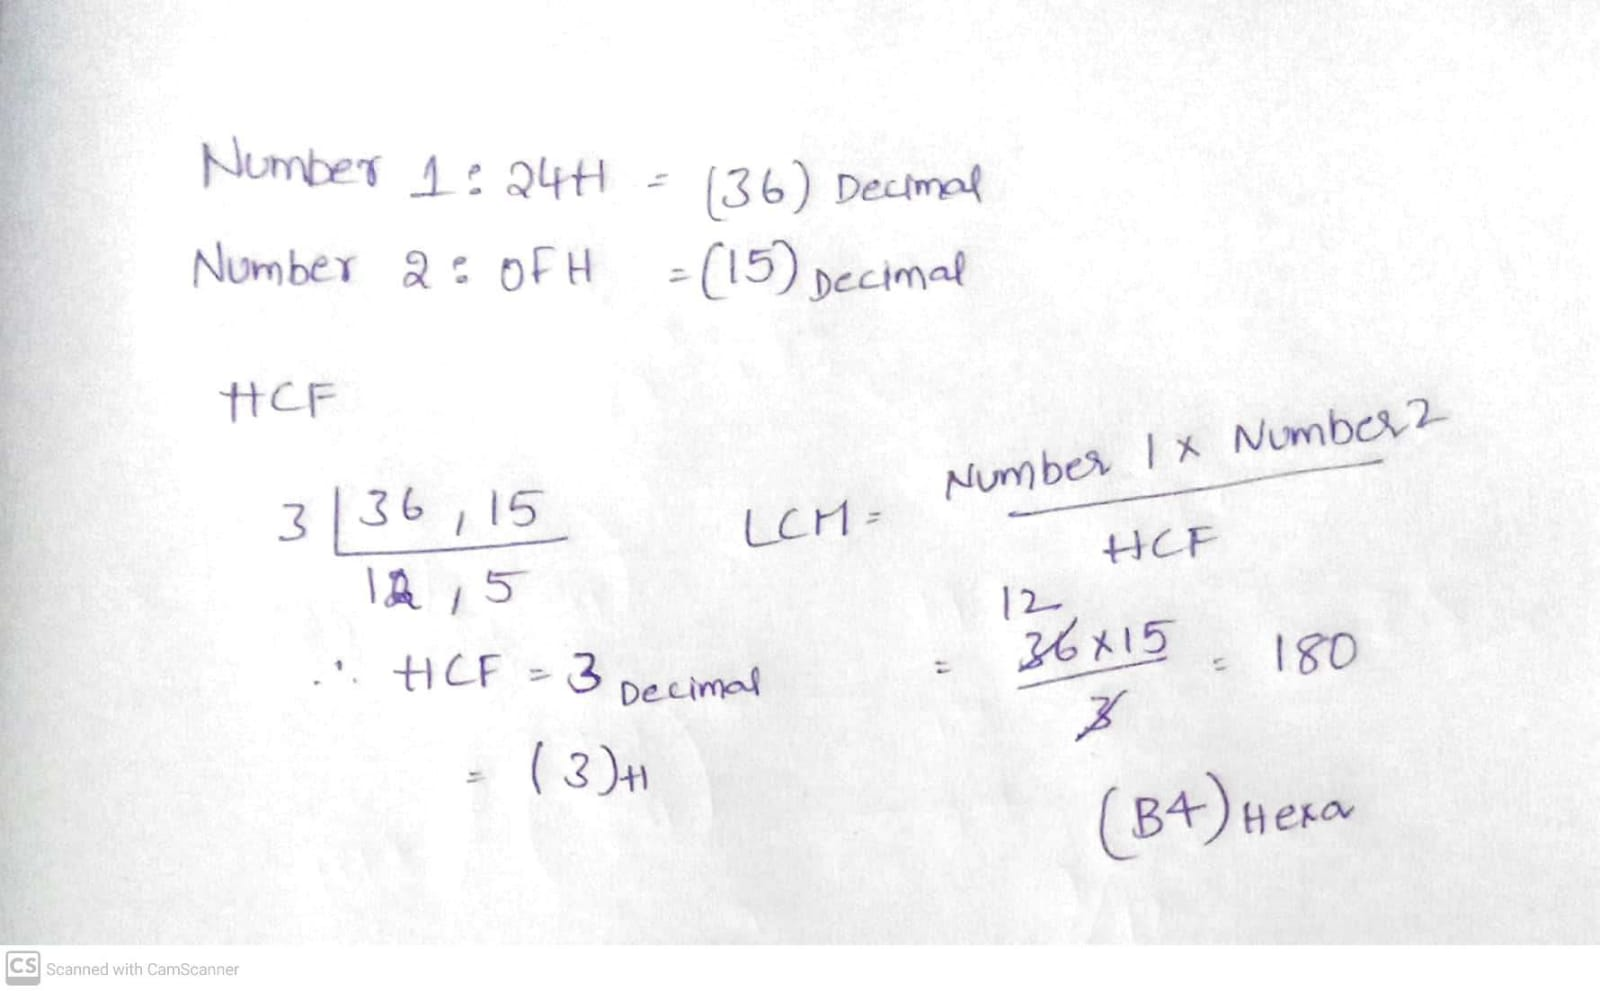 Number 1: 24H = (36) Decimal
Number 2: 0FH = (15) Decimal
HCF
3 | 36, 15
12, 5
∴ HCF = 3 Decimal
= (3)H
LCM = Number 1 x Number 2
HCF
12
= 36 x 15 = 180
3
(B4) Hexa
CS Scanned with CamScanner